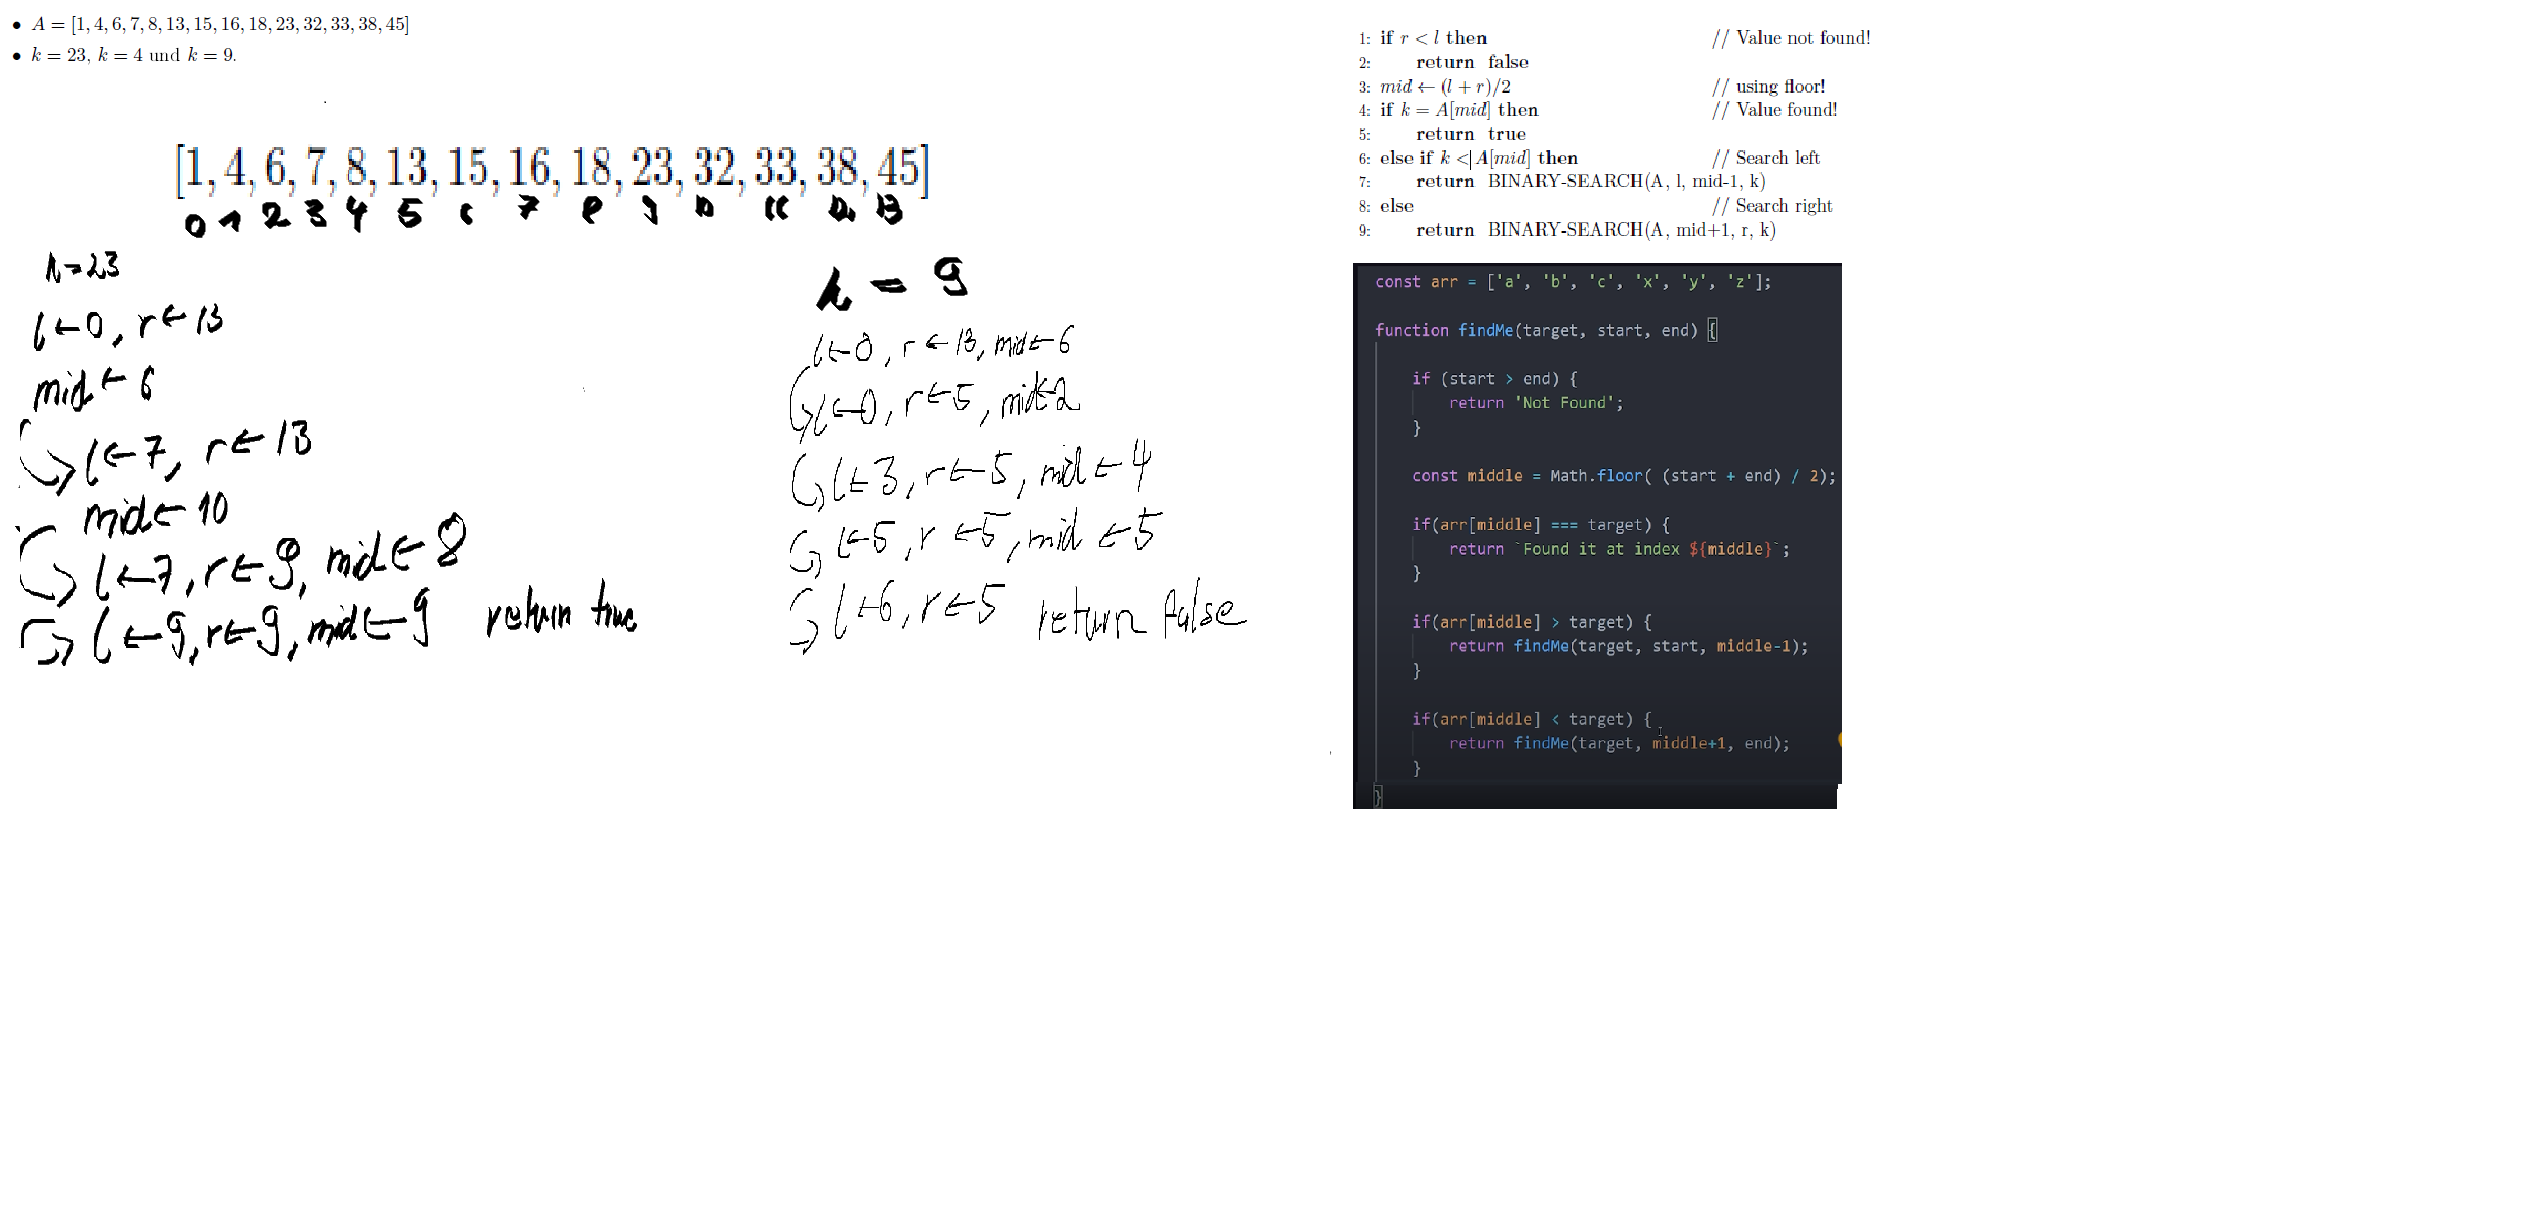 • A = [1, 4, 6, 7, 8, 13, 15, 16, 18, 23, 32, 33, 38, 45]
• k = 23, k = 4 und k = 9.
[1, 4, 6, 7, 8, 13, 15, 16, 18, 23, 32, 33, 38, 45]
0 1 2 3 4 5 6 7 8 9 10 11 12 13
k=23
l←0, r←13
mid←6
l←7, r←13
mid←10
l←7, r←9, mid←8
l←9, r←9, mid←9 return true
k = 9
l←0, r←13, mid←6
l←0, r←5, mid←2
l←3, r←5, mid←4
l←5, r←5, mid←5
l←6, r←5 return false
1: if r < l then // Value not found!
2: return false
3: mid ← (l + r)/2 // using floor!
4: if k = A[mid] then // Value found!
5: return true
6: else if k < A[mid] then // Search left
7: return BINARY-SEARCH(A, l, mid-1, k)
8: else // Search right
9: return BINARY-SEARCH(A, mid+1, r, k)
const arr = ['a', 'b', 'c', 'x', 'y', 'z'];
function findMe(target, start, end) {
if (start > end) {
return 'Not Found';
}
const middle = Math.floor( (start + end) / 2);
if(arr[middle] === target) {
return `Found it at index ${middle}`;
}
if(arr[middle] > target) {
return findMe(target, start, middle-1);
}
if(arr[middle] < target) {
return findMe(target, middle+1, end);
}
}